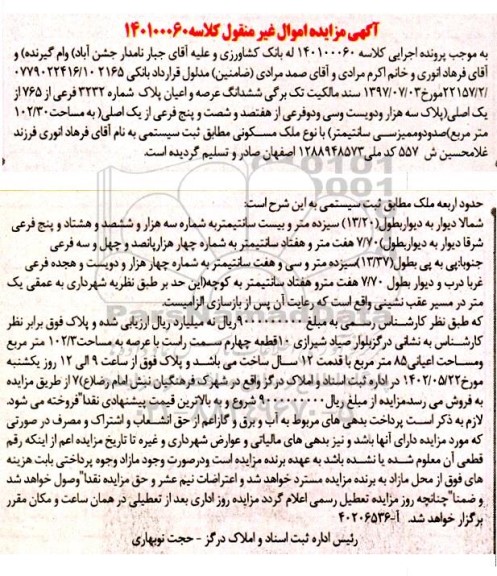 آگهی مزایده اموال غیر منقول کلاسه ۱۴۰۱۰۰۰۶۰
به موجب پرونده اجرایی کلاسه ۱۴۰۱۰۰۰۶۰ له بانک کشاورزی و علیه آقای جبار نامدار جشن آباد) وام گیرنده) و
آقای فرهاد انوری و خانم اکرم مرادی و آقای صمد مرادی (ضامنین) مدلول قرارداد بانکی ۲۱۶۵ ۰۷۷۹۰۲۲۴۱۶/۱۰
۲۲۱۵۷/۲/مورخ۱۳۹۷/۰۷/۰۳ سند مالکیت تک برگی ششدانگ عرصه و اعیان پلاک شماره ۳۲۳۲ فرعی از ۷۶۵ از
یک اصلی(پلاک سه هزار ودویست وسی ودوفرعی از هفتصد و شصت و پنج فرعی از یک اصلی( به مساحت۱۰۲/۳۰
متر مربع)صدودوممیزسی سانتیمتر) با نوع ملک مسکونی مطابق ثبت سیستمی به نام آقای فرهاد انوری فرزند
غلامحسین ش ۵۵۷ کد ملی۱۲۸۸۹۴۸۵۷۳ اصفهان صادر و تسلیم گردیده است.
حدود اربعه ملک مطابق ثبت سیستمی به این شرح است:
شمالا دیوار به دیواربطول(۱۳/۲۰) سیزده متر و بیست سانتیمتربه شماره سه هزار و ششصد و هشتاد و پنج فرعی
شرقا دیوار به دیواربطول)۷/۷۰ هفت متر و هفتاد سانتیمتر به شماره چهار هزارپانصد و چهل و سه فرعی
جنوبا:پی به پی بطول(۱۳/۳۷)سیزده متر و سی و هفت سانتیمتر به شماره چهار هزار و دویست و هجده فرعی
غربا درب و دیوار بطول ۷/۷۰ هفت مترو هفتاد سانتیمتر به کوچه(این حد بر طبق نظریه شهرداری به عمقی یک
متر در مسیر عقب نشینی واقع است که رعایت آن پس از بازسازی الزامیست.
که طبق نظر کارشناس رسمی به مبلغ ۹۰۰۰۰۰۰۰۰۰ریال نه میلیارد ریال ارزیابی شده و پلاک فوق برابر نظر
کارشناس به نشانی درگزبلوار صیاد شیرازی ۱۰قطعه چهارم سمت راست با عرصه به مساحت۱۰۲/۳ متر مربع
ومساحت اعیانی۸۵ متر مربع با قدمت ۱۲ سال ساخت می باشد و پلاک فوق از ساعت ۹ الی ۱۲ روز یکشنبه
مورخ۱۴۰۲/۰۵/۲۲ در اداره ثبت اسناد و املاک درگز واقع در شهرک فرهنگیان نبش امام رضا(ع)۷ از طریق مزایده
به فروش می رسدمزایده از مبلغ ریال۹۰۰۰۰۰۰۰۰۰ شروع و به بالاترین قیمت پیشنهادی نقدا"فروخته می شود.
لازم به ذکر است پرداخت بدهی های مربوط به آب و برق و گازاعم از حق انشعاب و اشتراک و مصرف در صورتی
که مورد مزایده دارای آنها باشد و نیز بدهی های مالیاتی و عوارض شهرداری و غیره تا تاریخ مزایده اعم از اینکه رقم
قطعی آن معلوم شده یا نشده باشد به عهده برنده مزایده است ودرصورت وجود مازاد وجوه پرداختی بابت هزینه
های فوق از محل مازاد به برنده مزایده مسترد خواهد شد و اعتراضات نیم عشر و حق مزایده نقدا"وصول خواهد شد
و ضمنا"چنانچه روز مزایده تعطیل رسمی اعلام گردد مزایده روز اداری بعد از تعطیلی در همان ساعت و مکان مقرر
برگزار خواهد شد. آ-۴۰۲۰۶۵۳۶
رئیس اداره ثبت اسناد و املاک درگز - حجت نوبهاری